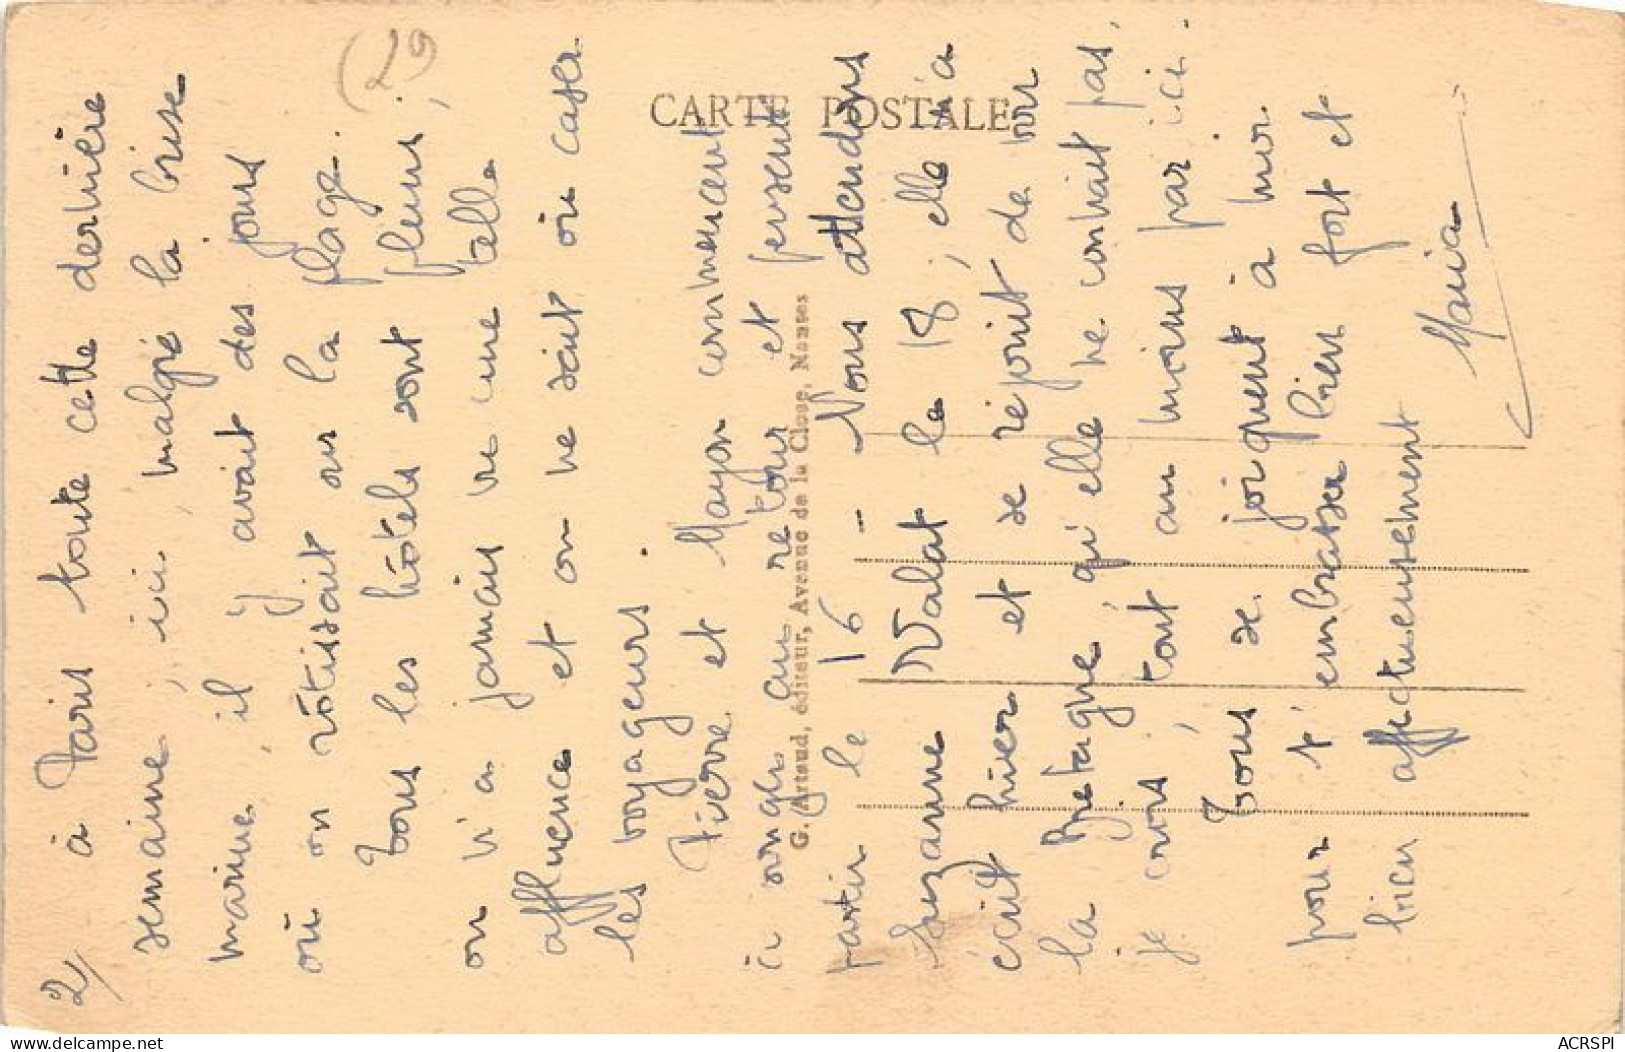 2/ à Paris toute cette dernière
semaine ; ici, malgré la brise
marine, il y avait des jours
où on rôtissait sur la plage.
Tous les hôtels sont pleins ;
on n'a jamais vu une telle
affluence et on ne sait où caser
les voyageurs.
Pierre et Mayon commencent
à songer au retour et pensent
partir le 16 - Nous attendons
Suzanne Walat le 18 ; elle m'a
écrit hier et se réjouit de voir
la Bretagne, qu'elle ne connait pas,
je crois, tout au moins par ici.
Tous se joignent à moi
pour t'embrasser bien fort et
bien affectueusement
Maria
(29
CARTE POSTALE
G. Artaud, éditeur, Avenue de la Close, Nantes
www.delcampe.net
ACRSPI